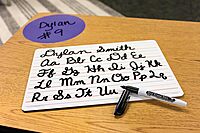 Dylan
# 9
Dylan Smith
Aa Bb Cc Dd Ee
Ff Gg Hh Ii Jj Kk
Ll Mm Nn Oo Pp Qq
Rr Ss Tt Uu